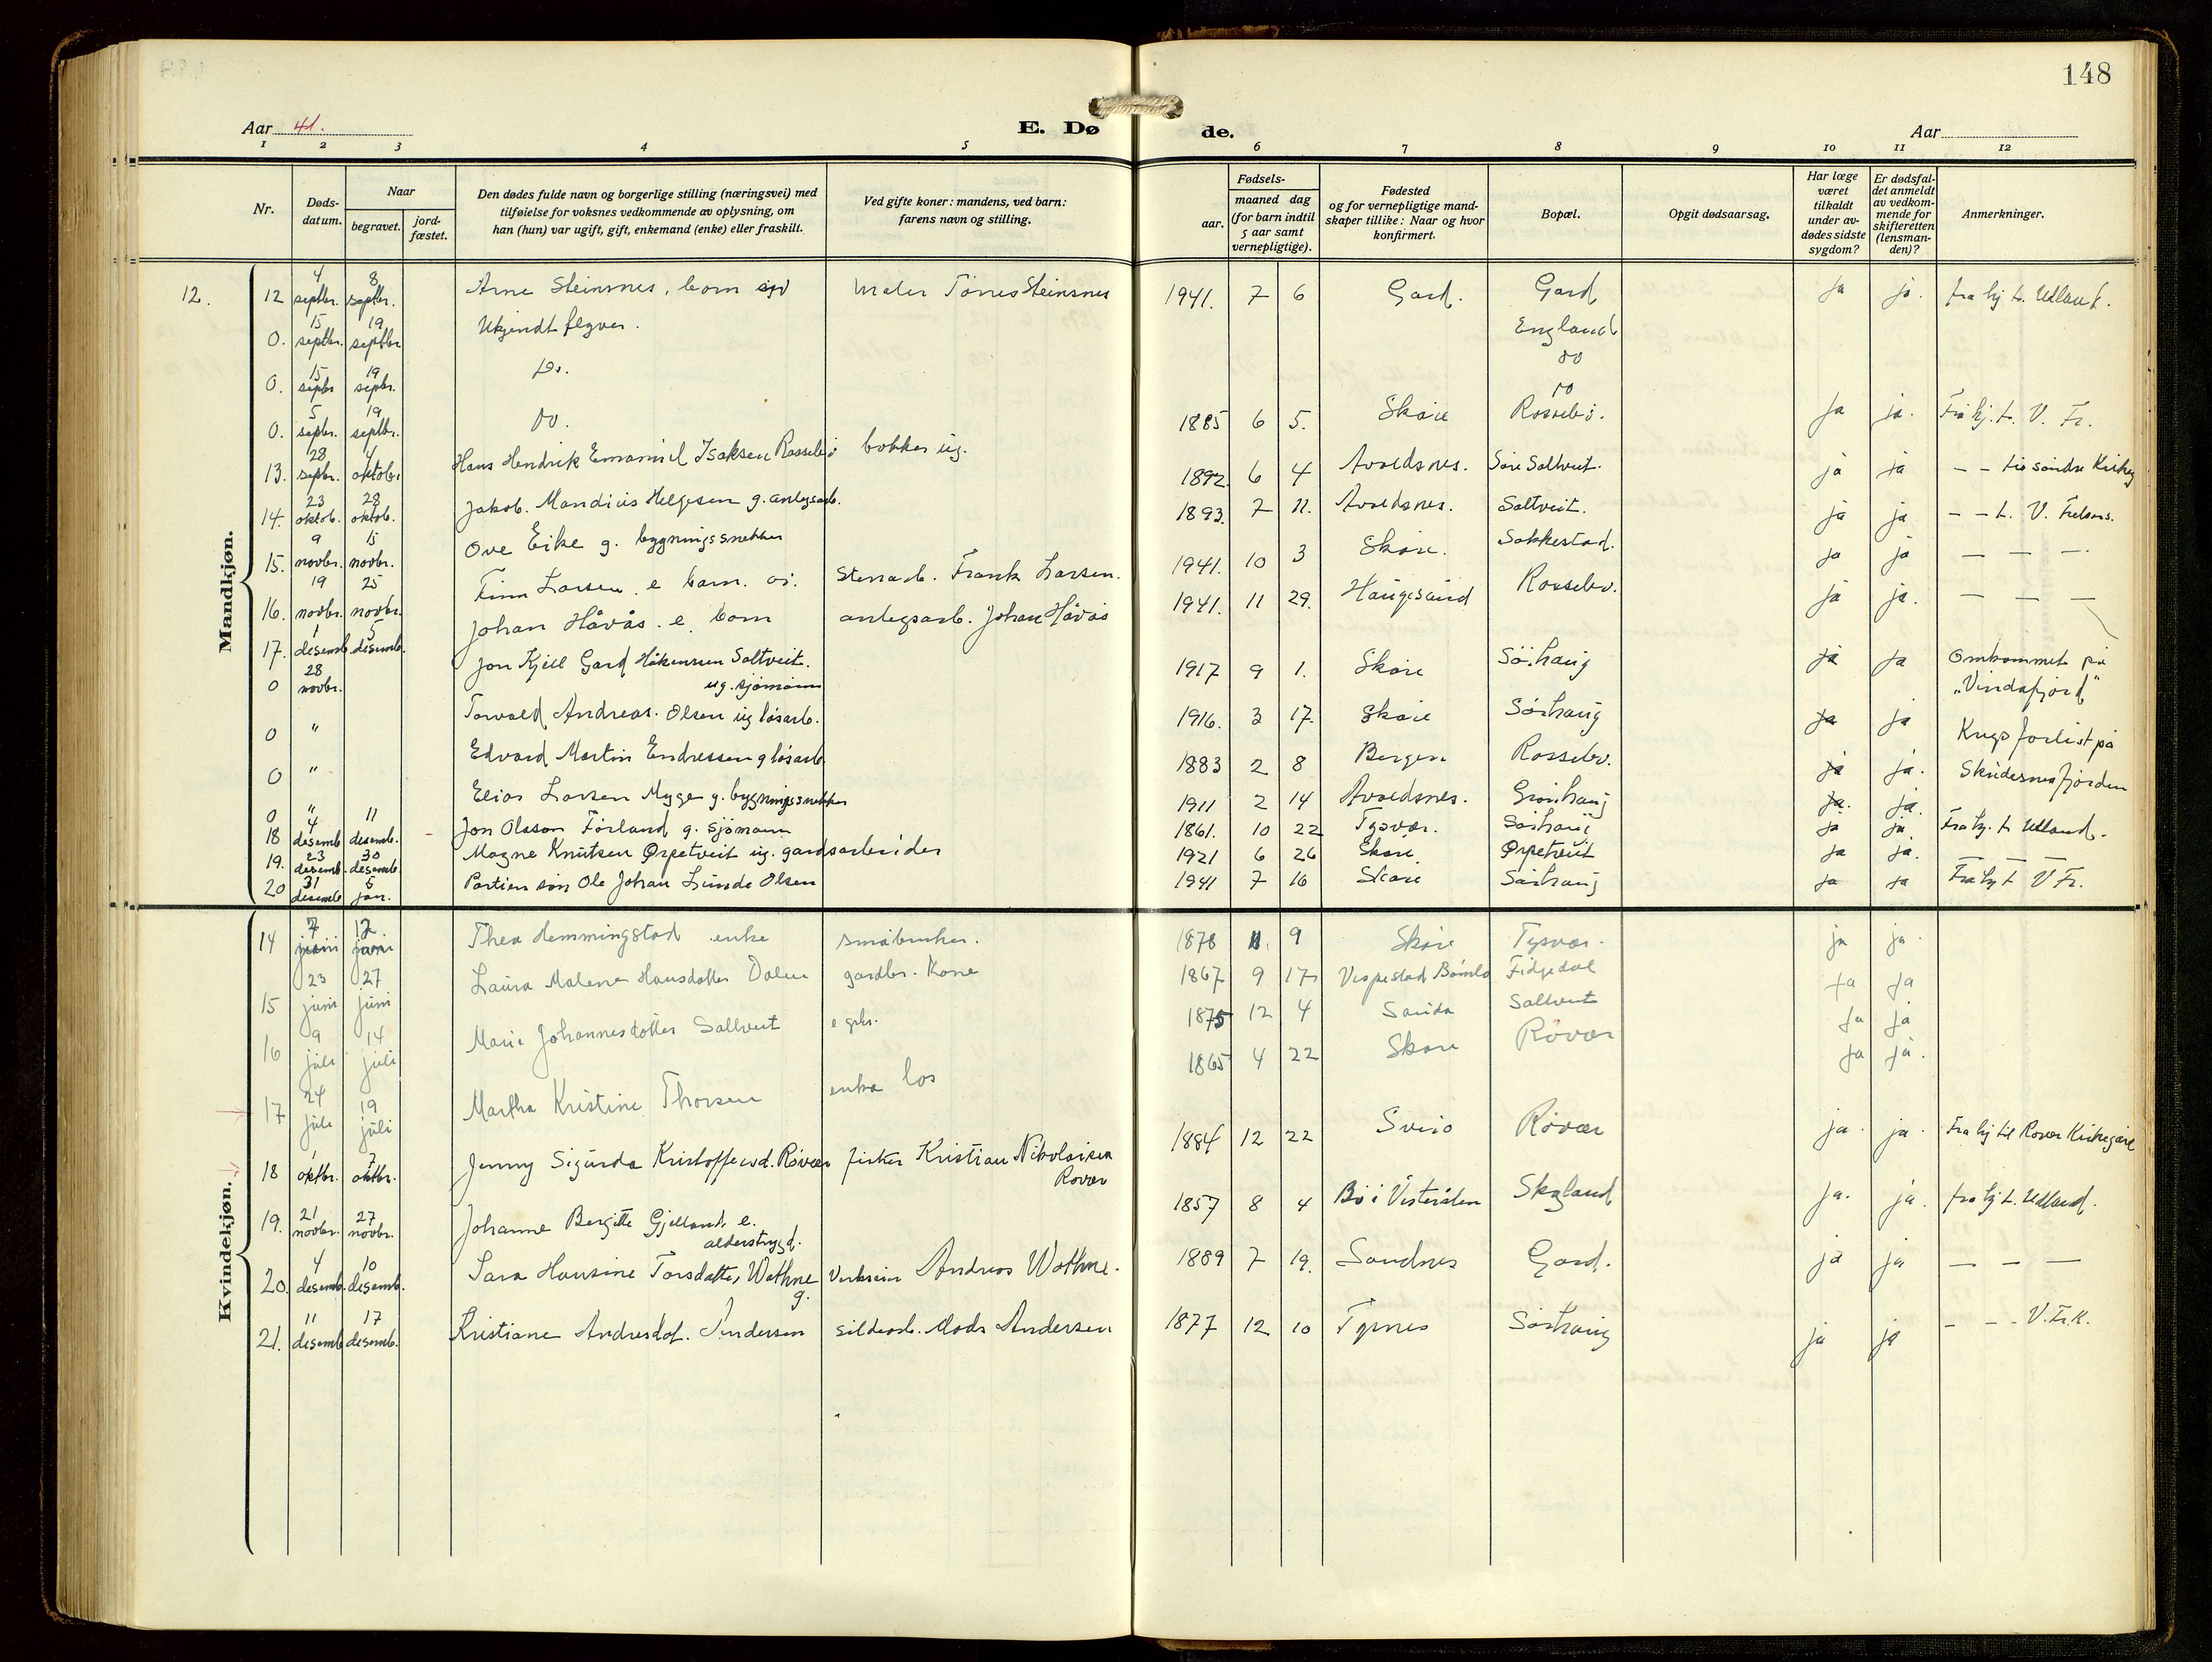 148
Aar 41.
E. Dø
de.
Aar
1 2 3 4 5 6 7 8 9 10 11 12
Nr.
Døds-
datum.
Naar
begravet.
jord-
fæstet.
Den dødes fulde navn og borgerlige stilling (næringsvei) med
tilføielse for voksnes vedkommende av oplysning, om
han (hun) var ugift, gift, enkemand (enke) eller fraskilt.
Ved gifte koner: mandens, ved barn:
farens navn og stilling.
Fødsels-
aar.
maaned dag
(for barn indtil
5 aar samt
vernepligtige).
Fødested
og for vernepligtige mand-
skaper tillike: Naar og hvor
konfirmert.
Bopæl.
Opgit dødsaarsag.
Har læge
været
tilkaldt
under av-
dødes sidste
sygdom?
Er dødsfal-
det anmeldt
av vedkom-
mende for
skifteretten
(lensman-
den)?
Anmerkninger.
Mandkjøn.
12. 12 4 septbr. 8 septbr. Arne Steinsnes, barn Maler Tönnes Steinsnes 1941. 7 6 Gard. Gard ja ja. fra hj t. Udland.
0. 15 septbr. 19 septbr Ukjendt flyver. England
0. 15 septbr 19 septbr. Do. do
0. 5 septbr. 19 septbr. Do. do
13. 28 septbr. 4 oktobr Hans Hendrik Emanuel Isaksen Rossebö bökker ug. 1885 6 5. Skåre Rossebö. ja ja. Fra hj. t. V. Fr.
14. 23 oktob. 28 oktob. Jakob Mandius Helgesen g. anlegsarb. 1892. 6 4 Avaldsnes. Söre Saltveit. ja ja — — til söndre Kirkeg
15. 9 novbr. 15 novbr. Ove Eike g. bygningssnekker 1893. 7 11. Avaldsnes. Saltveit. ja ja — — t. V. Frelsers.
16. 19 novbr. 25 novbr. Finn Larsen e barn. Stenarb. Frank Larsen. 1941. 10 3 Skåre. Sakkestad. ja ja — — —
17. 1 desemb. 5 desemb. Johan Håvås. e. barn anlegsarb. Johan Håvås 1941. 11 29. Haugesund Rossebö. ja ja. — — —
0 28 novbr. Jon Kjell Gard Håkonsen Saltveit.
ug. sjömann 1917 9 1. Skåre Sörhaug ja ja Omkommet på
"Vindafjord"
0 " Torvald Andreas. Olsen ug lösarb. 1916. 3 17. Skåre Sörhaug ja ja Krigsforlist på
0 " Edvard Martin Endressen g lösarb. 1883 2 8 Bergen Rossebö. ja ja. Skudesnesfjorden
0 " Elias Larsen Myge g. bygningssnekker 1911 2 14 Avaldsnes. Grönhaug ja. ja.
18 4 desemb 11 desemb. Jon Olsson Förland g. sjömann 1861. 10 22 Tysvær. Sörhaug ja ja Fra hj. t Udland.
19. 23 desemb. 30 desemb. Magne Knutsen Ørpetveit ug. gardsarbeider 1921 6 26 Skåre. Ørpetveit ja ja. — — —
20 31 desemb 5 jan. Portien sön Ole Johan Lunde Olsen 1941 7 16 Skåre Sörhaug ja ja Fra hj t V Fr.
Kvindekjøn.
14 7 juni 12. juni Thea Hemmingstad enke småbruker. 1878 11. 9 Skåre Tysvær. ja ja.
15 23 juni 27 juni Laura Malene Hansdatter Dalen gardbr. Kone 1867 9 17 Vespestad Bömlo Fidgedal ja ja
16 9 juli 14 juli Marie Johannesdatter Saltveit e gbr. 1875 12 4 Sauda Saltveit ja ja
17 24 juli 19 juli Martha Kristine Thorsen enke los 1865 4 22 Skåre Rövær ja ja.
18 1 oktbr. 7 oktbr. Jenny Sigurda Kristoffersd. Rövær fisker Kristian Nikolaisen
Rövær 1884 12 22 Sveio Rövær ja. ja. Fra hj til Rövær Kirkegård
19. 21 novbr. 27 novbr. Johanne Bergitte Gjelland e.
alderstrygd. 1857 8 4 Bö i Vesterålen Skjland ja. ja. fra hj t. Udland.
20. 4 desemb. 10 desemb. Sara Hansine Torsdatter Wathne
g. Verkseier Andreas Wathne. 1889 7 19. Sandnes Gard. ja ja — — —
21. 11 desemb 17 desemb. Kristiane Andresdot. Andersen Sildearb. Mads Andersen 1877 12 10 Tysnes Sörhaug ja ja — — V. Fr. K.